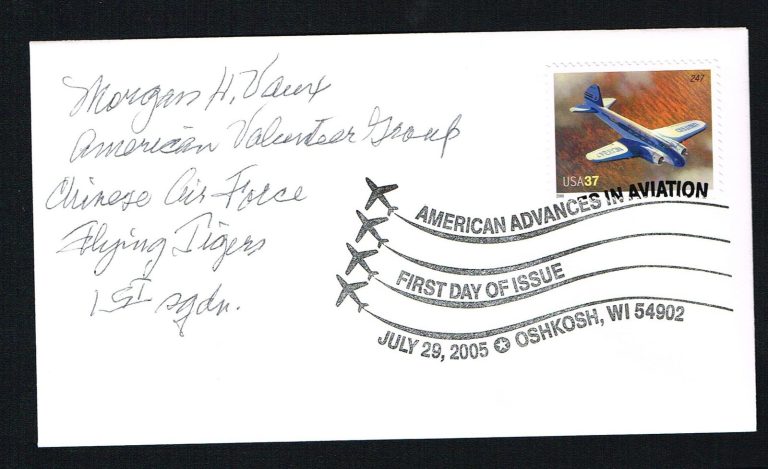 Morgan H. Vaux
American Volunteer Group
Chinese Air Force
Flying Tigers
1st sqdn.
247
USA37
AMERICAN ADVANCES IN AVIATION
FIRST DAY OF ISSUE
JULY 29, 2005 ✪ OSHKOSH, WI 54902